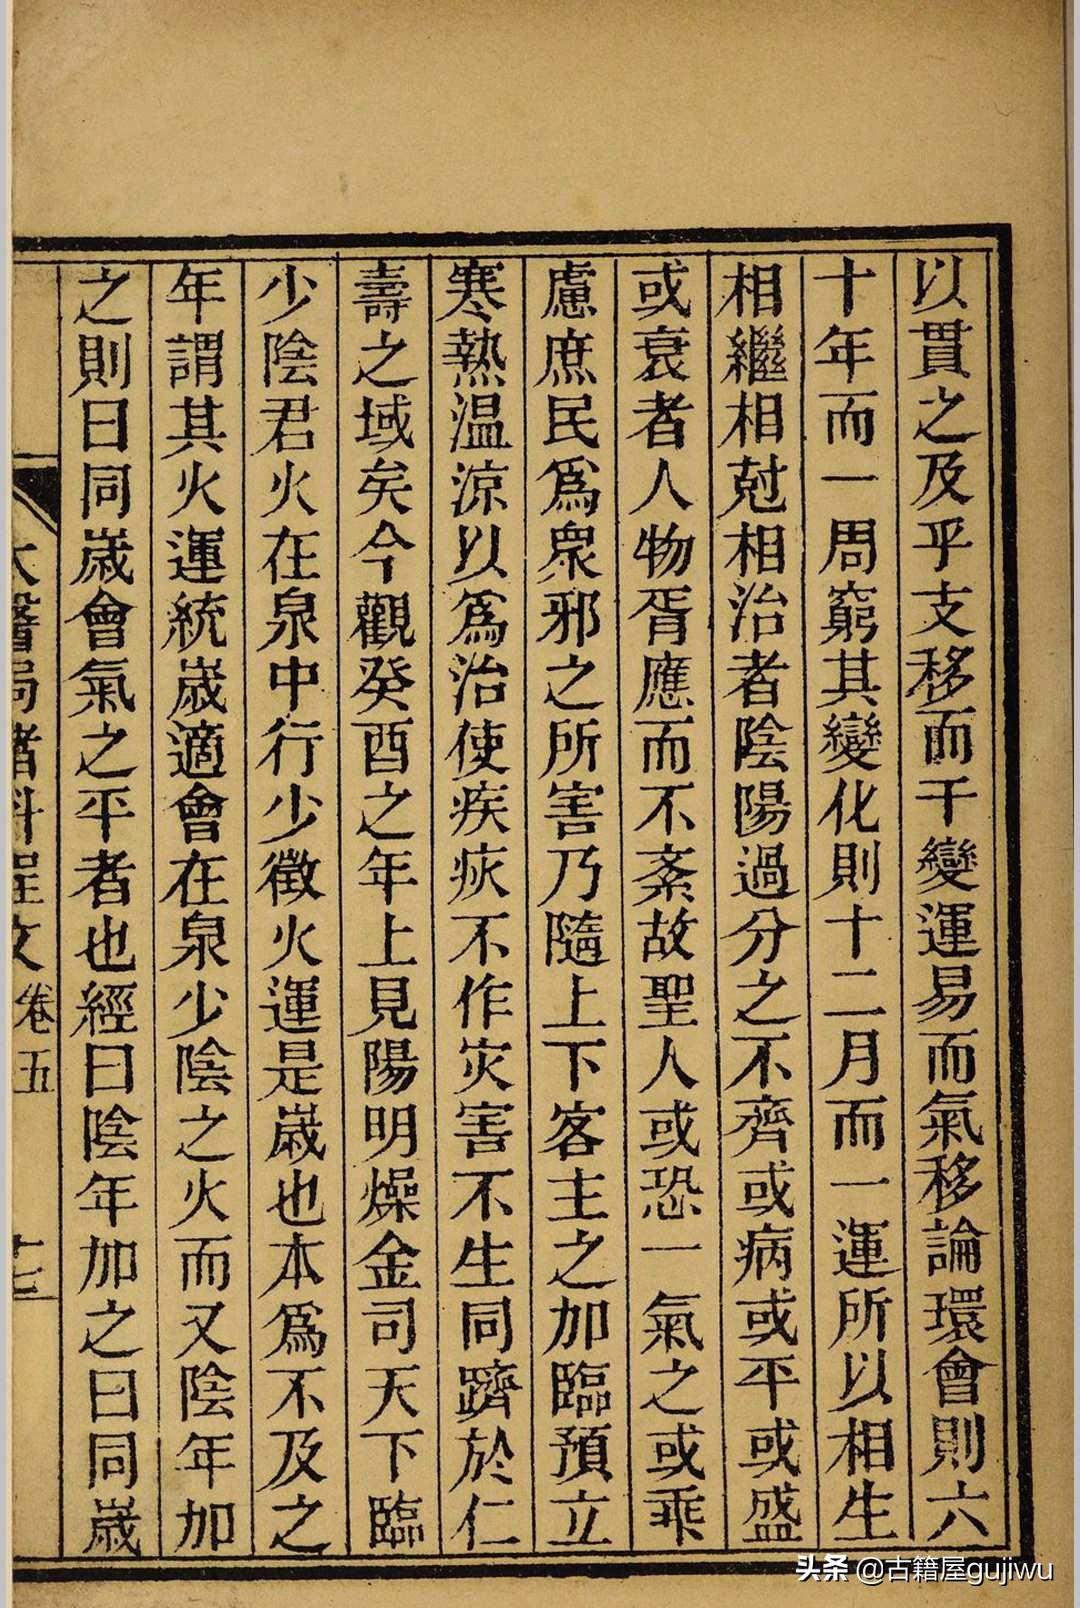 以貫之及乎支移而干變運易而氣移論環會則六
十年而一周窮其變化則十二月而一運所以相生
相繼相尅相治者陰陽過分之不齊或病或平或盛
或衰者人物胥應而不紊故聖人或恐一氣之或乖
慮庶民爲衆邪之所害乃隨上下客主之加臨預立
寒熱温涼以爲治使疾疢不作灾害不生同躋於仁
壽之域矣今觀癸酉之年上見陽明燥金司天下臨
少陰君火在泉中行少徵火運是嵗也本爲不及之
年謂其火運統嵗適會在泉少陰之火而又陰年加
之則曰同嵗會氣之平者也經曰陰年加之曰同嵗
太醫局諸科程文 卷五 十七
头条 @古籍屋gujiwu